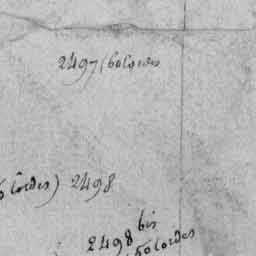 2497 (60 Cordes
6 Cordes) 2498
2498 bis
50 Cordes